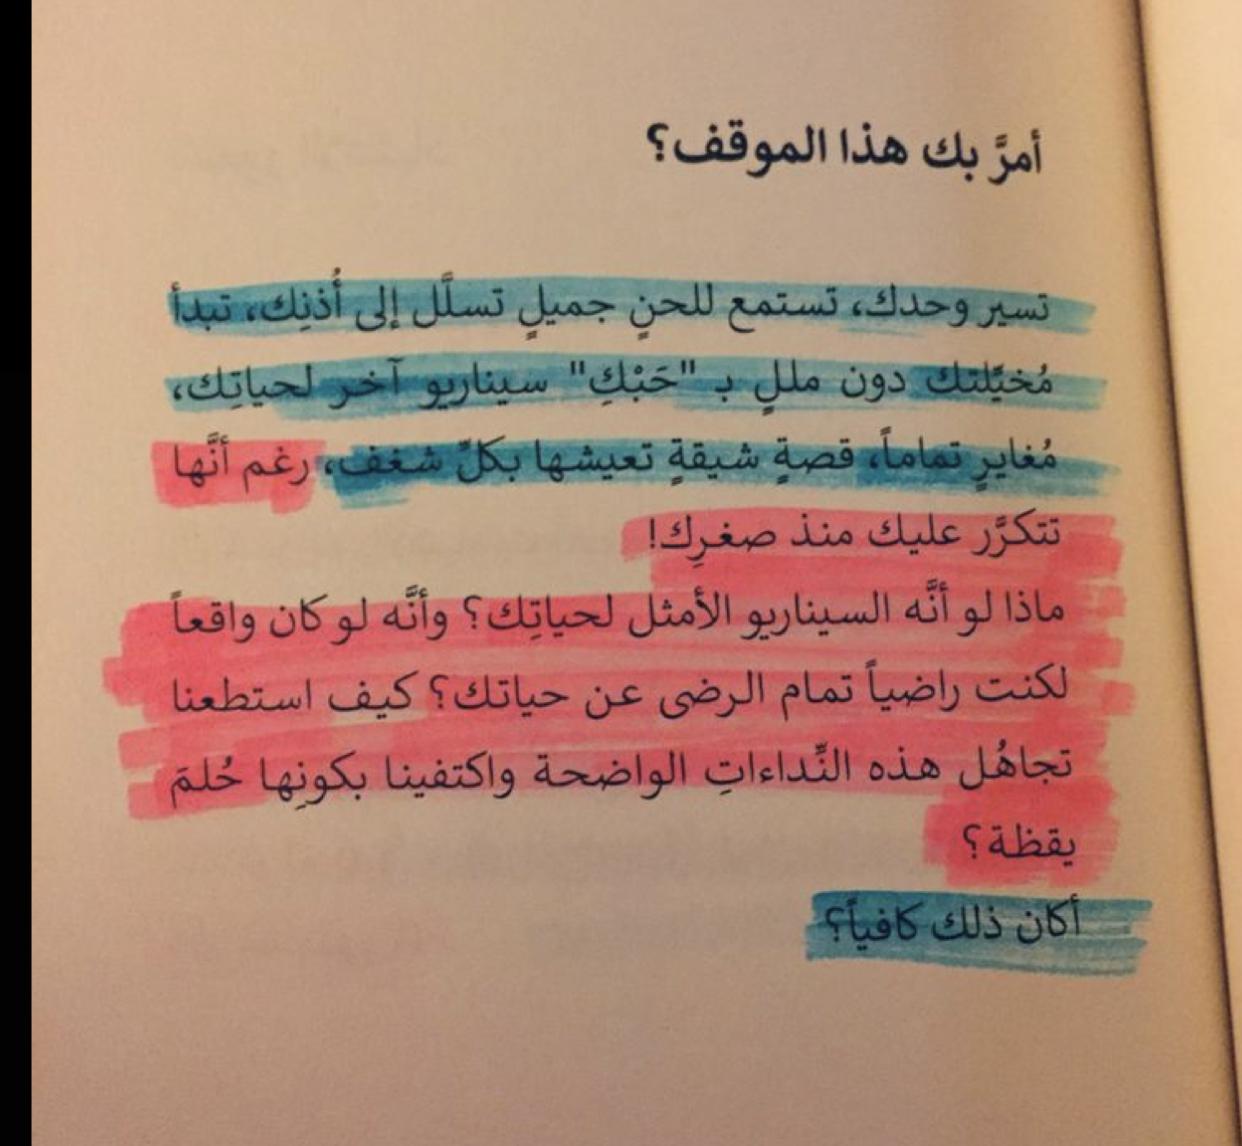 أمرَّ بك هذا الموقف؟
تسير وحدك، تستمع للحنٍ جميلٍ تسلَّل إلى أُذنِك، تبدأ
مُخيَّلتك دون مللٍ بـ "حَبْكِ" سيناريو آخر لحياتِك،
مُغايرٍ تماماً، قصةٍ شيقةٍ تعيشها بكلِّ شغف، رغم أنَّها
تتكرَّر عليك منذ صغرِك!
ماذا لو أنَّه السيناريو الأمثل لحياتِك؟ وأنَّه لو كان واقعاً
لكنت راضياً تمام الرضى عن حياتك؟ كيف استطعنا
تجاهُل هذه النِّداءاتِ الواضحة واكتفينا بكونِها حُلمَ
يقظة؟
أكان ذلك كافياً؟